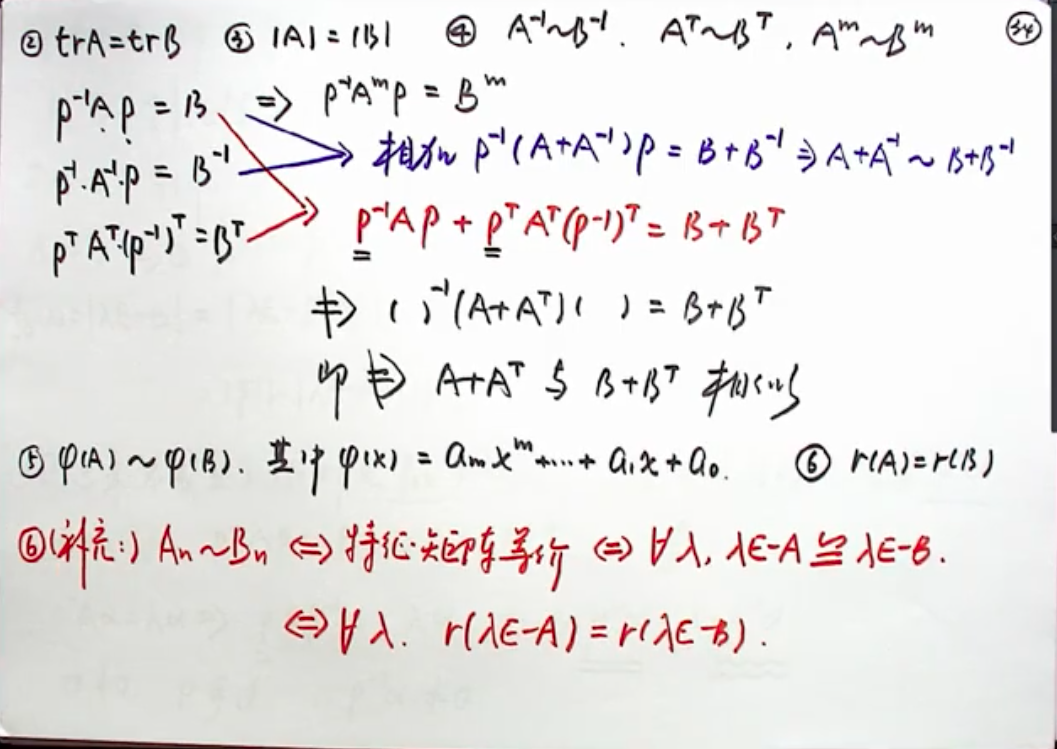 ② trA=trB ③ |A|=|B| ④ A⁻¹~B⁻¹. Aᵀ~Bᵀ, Aᵐ~Bᵐ 34
P⁻¹AP = B ⇒ P⁻¹AᵐP = Bᵐ
相加 P⁻¹(A+A⁻¹)P = B+B⁻¹ ⇒ A+A⁻¹ ~ B+B⁻¹
P⁻¹·A⁻¹·P = B⁻¹
P⁻¹AP + PᵀAᵀ(P-1)ᵀ = B+Bᵀ
PᵀAᵀ·(P⁻¹)ᵀ=Bᵀ
⇏ ( )⁻¹(A+Aᵀ)( ) = B+Bᵀ
即 ⇏ A+Aᵀ 与 B+Bᵀ 相似
⑤ φ(A)~φ(B). 其中 φ(x) = aₘxᵐ+...+a₁x+a₀. ⑥ r(A)=r(B)
⑥(补充:) Aₙ~Bₙ ⇔ 特征矩阵等价 ⇔ ∀λ, λE-A≌λE-B.
⇔∀λ. r(λE-A)=r(λE-B).